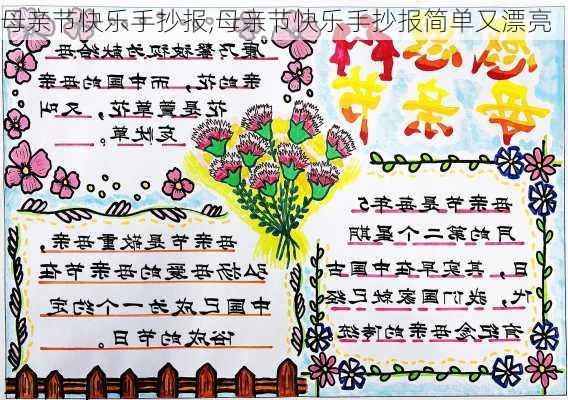 母亲节快乐手抄报,母亲节快乐手抄报简单又漂亮
感恩
母亲节
康乃馨被视为献给母
亲的花，而中国的母亲
花是萱草花，又叫
忘忧草。
母亲节是每年5
月的第二个星期
日，其实早在中国古
代，我们国家就已经
有纪念母亲的传统
母亲节是敬重母亲，
弘扬母爱的母亲节在
中国已成为一个约定
俗成的节日。